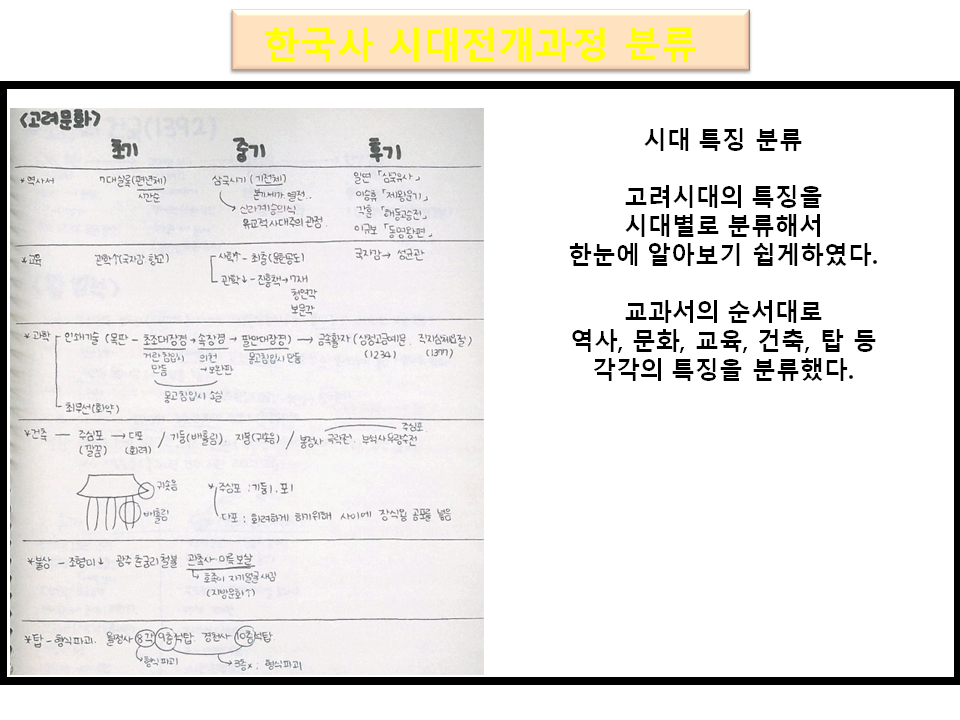 한국사 시대전개과정 분류
<고려문화>
초기 중기 후기
*역사서 7대실록(편년체) 삼국사기(기전체) 일연 「삼국유사」
시간순 본기세가열전.. 이승휴 「제왕운기」
→신라계승의식 각훈 「해동고승전」
유교적사대주의 관점. 이규보 「동명왕편」
*교육 관학↑(국자감 향교) 사학↑ - 최충(문헌공도) 국자감→성균관
관학↓ - 진흥책→7재
청연각
보문각
*과학 인쇄기술 (목판 - 초조대장경→속장경→팔만대장경) → 금속활자 (상정고금예문. 직지심체요절)
거란침입시 의천 몽고침입시 만듦 (1234) (1377)
만듦 →보완판
몽고침입시 소실
최무선(화약)
주심포
*건축 — 주심포 → 다포 / 기둥(배흘림). 지붕(귀솟음) / 봉정사 극락전. 부석사 무량수전
(깔끔) (화려)
귀솟음 *주심포 : 기둥1. 포1
배흘림 다포 : 화려하게 하기위해 사이에 장식용 공포를 넣음
*불상 - 조형미↓ 광주 춘궁리 철불 관촉사 미륵보살
호족이 자기얼굴새김
(지방문화↑)
*탑 - 형식파괴. 월정사 8각 9층석탑. 경천사 10층석탑
→형식파괴 →3층x. 형식파괴
시대 특징 분류
고려시대의 특징을
시대별로 분류해서
한눈에 알아보기 쉽게하였다.
교과서의 순서대로
역사, 문화, 교육, 건축, 탑 등
각각의 특징을 분류했다.